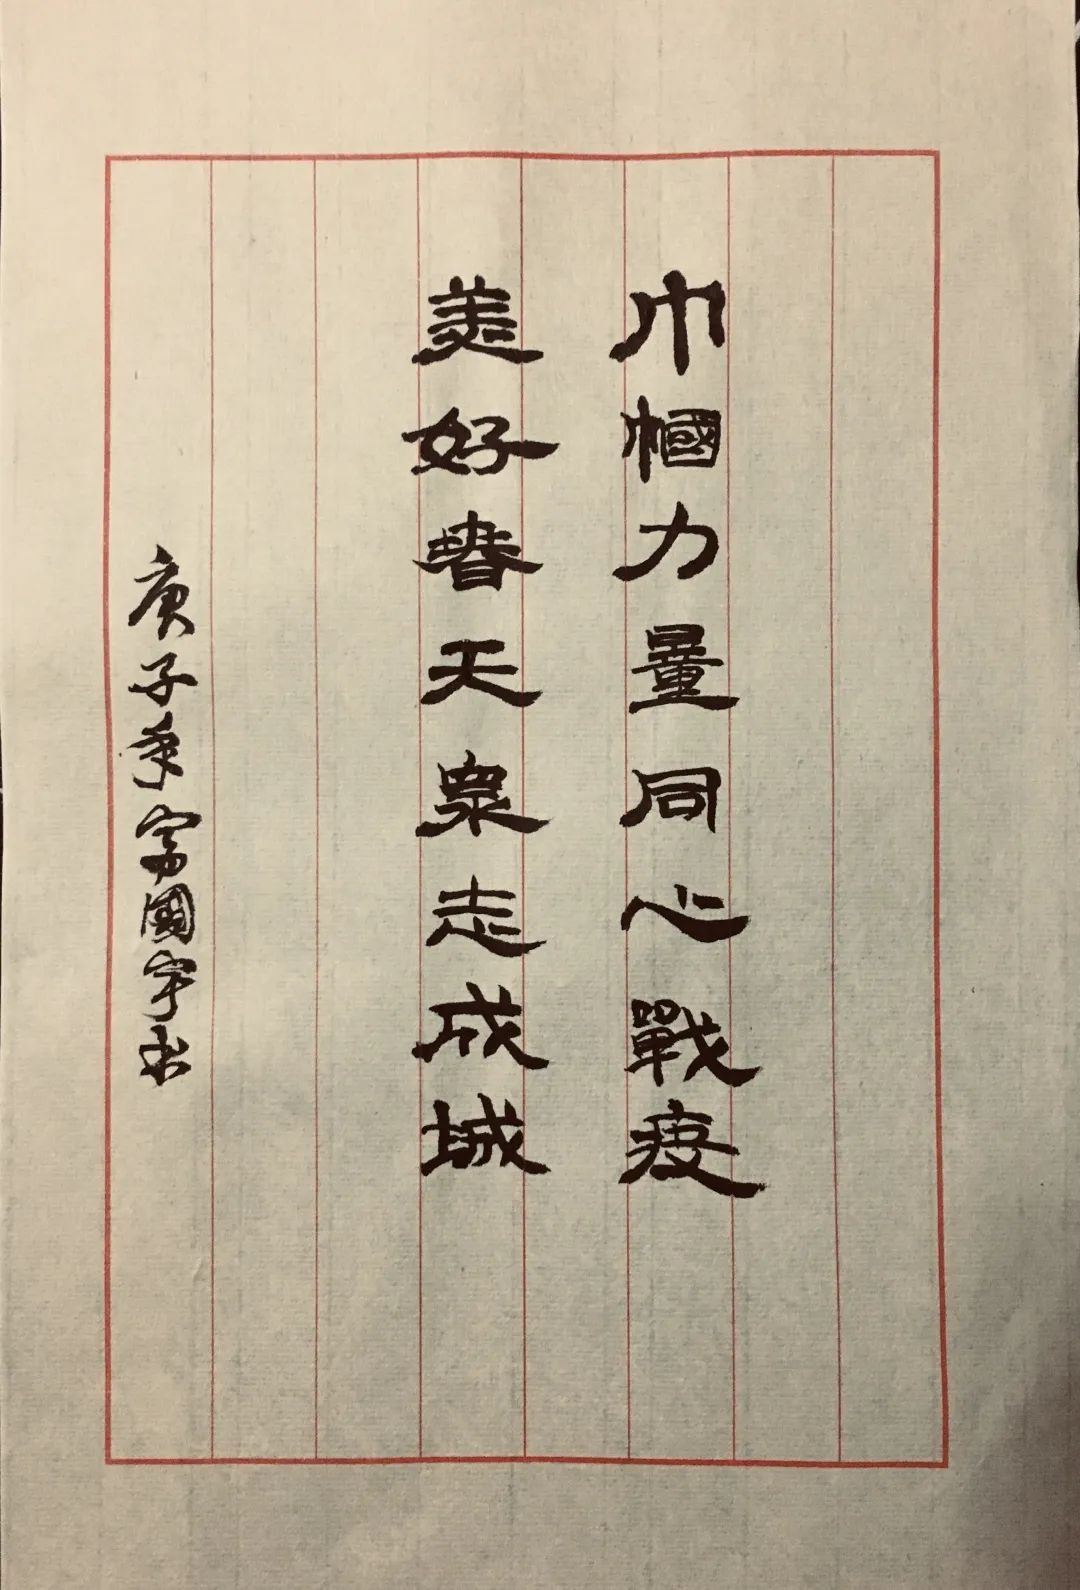 巾帼力量同心戰疫
美好春天衆志成城
庚子年富國宇书